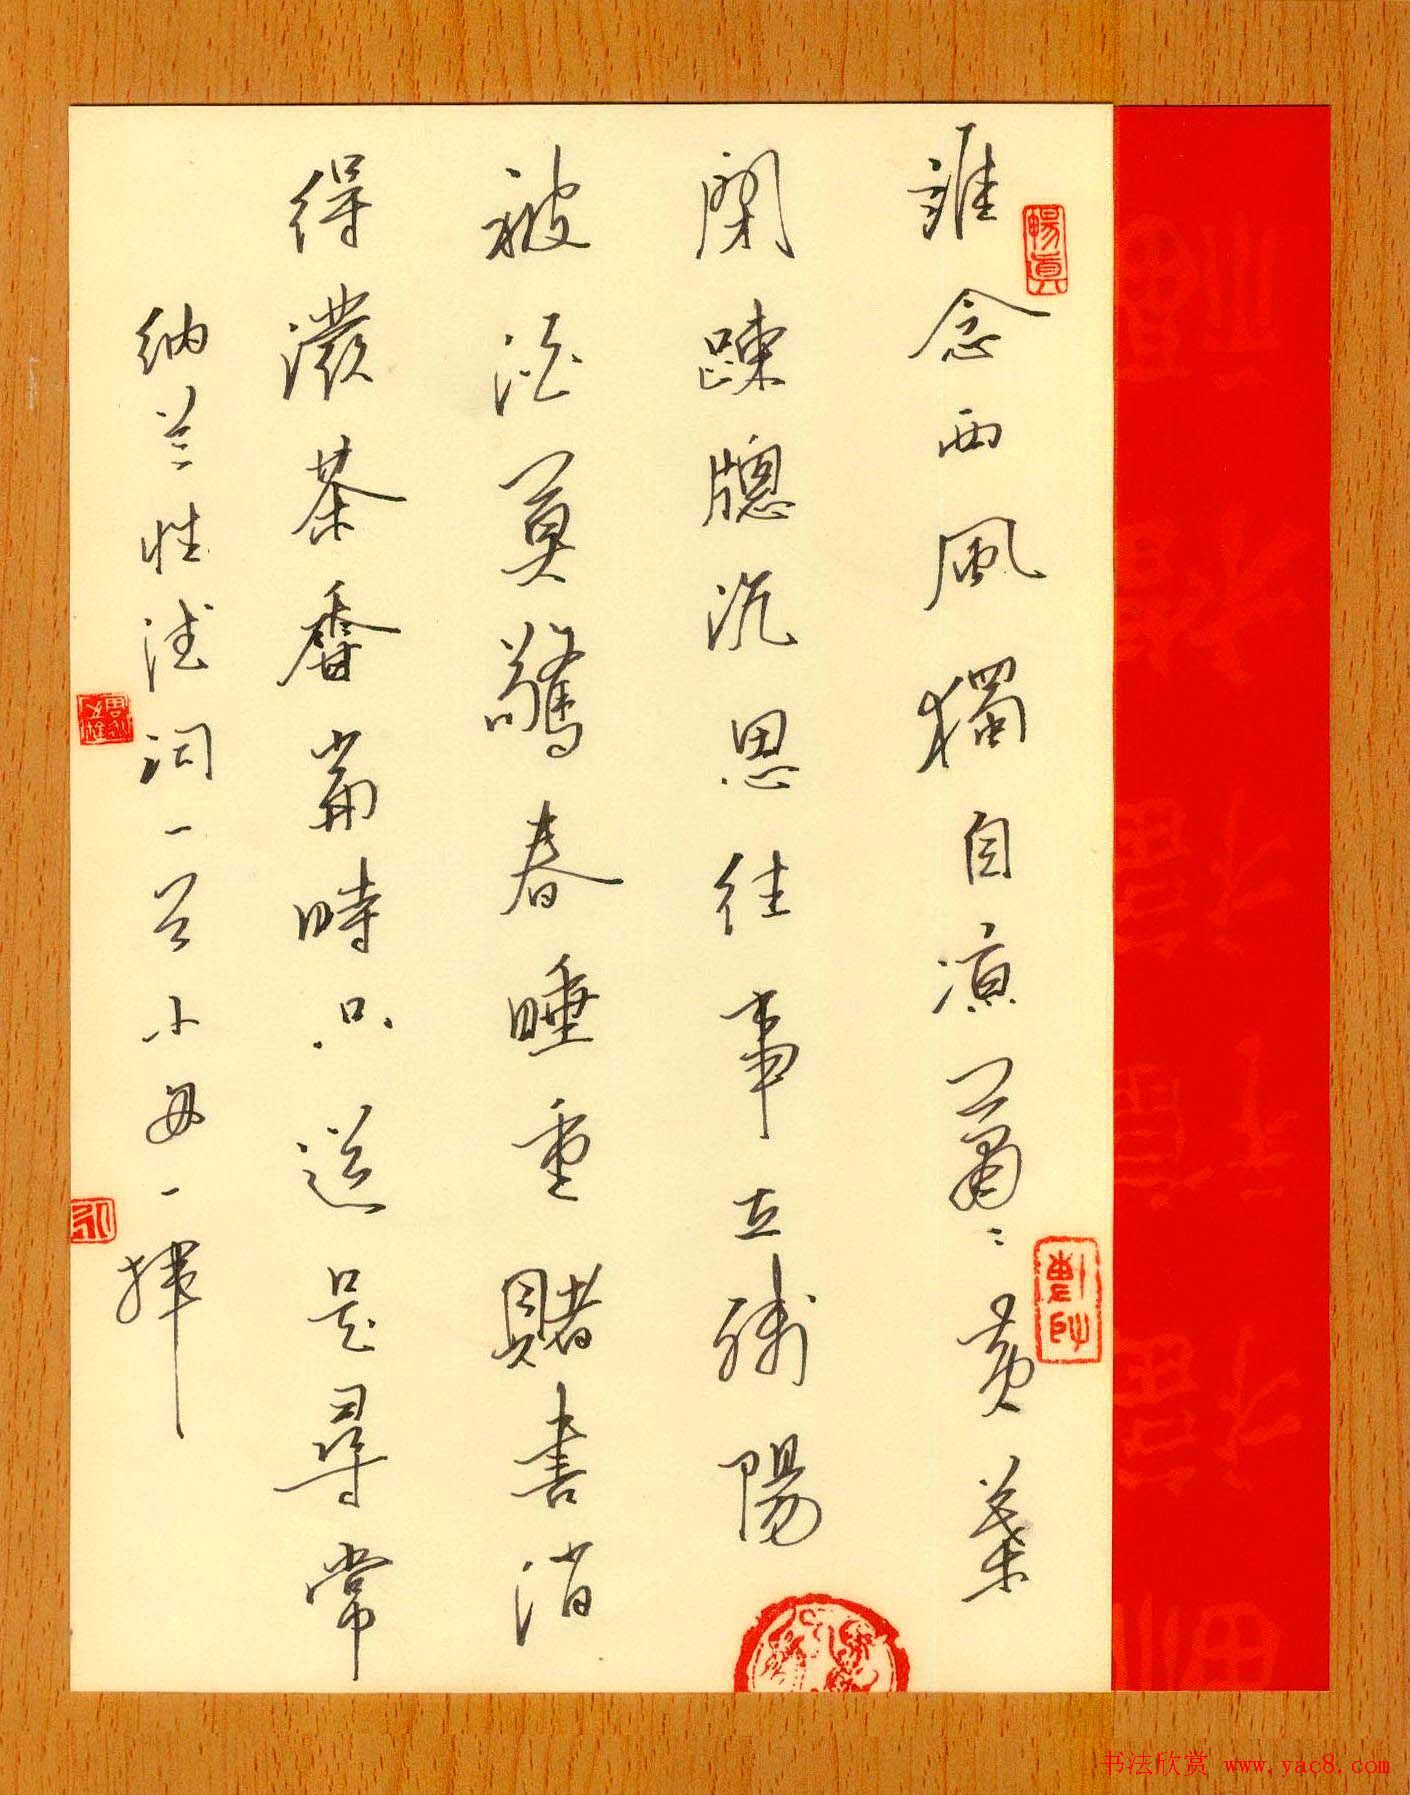 誰念西風獨自凉蕭〻黃葉
閉疎牕沉思往事立殘陽
被酒莫驚春睡重賭書消
得潑茶香當時只道是尋常
納兰性德词一首小一揮
暢真
书法欣赏 www.yac8.com